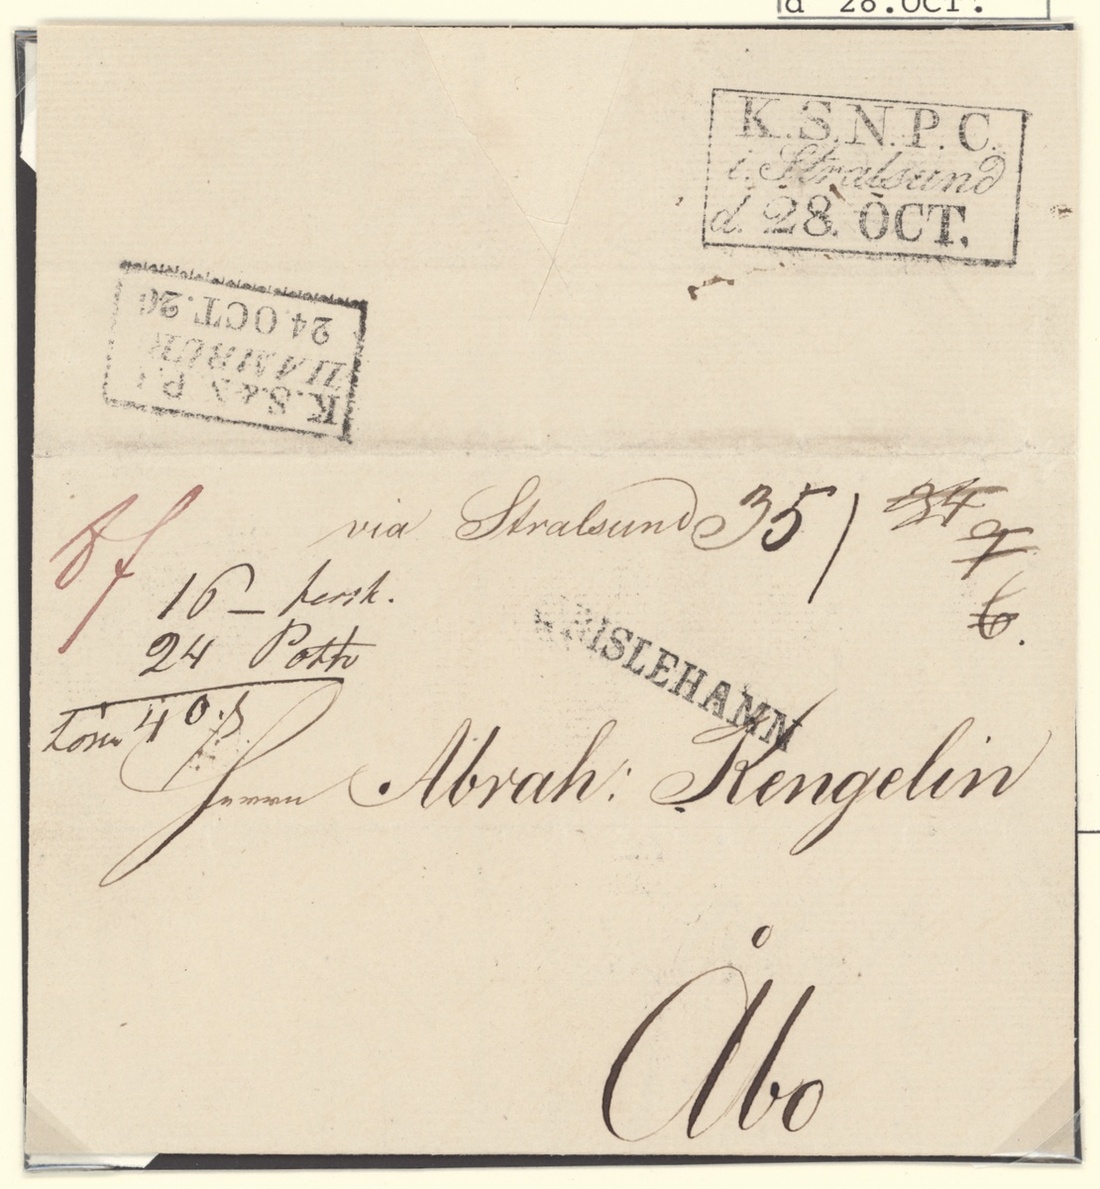 d 28.OCT.
K.S.N.P.C.
i. Stralsund
d. 28. OCT.
K.S.&N.P.
HAMBUR
24 OCT. 20
via Stralsund 35
24
7
6.
16 –
24 Porto
40
GRISLEHAMN
Herrn Abrah: Kengelin
Åbo